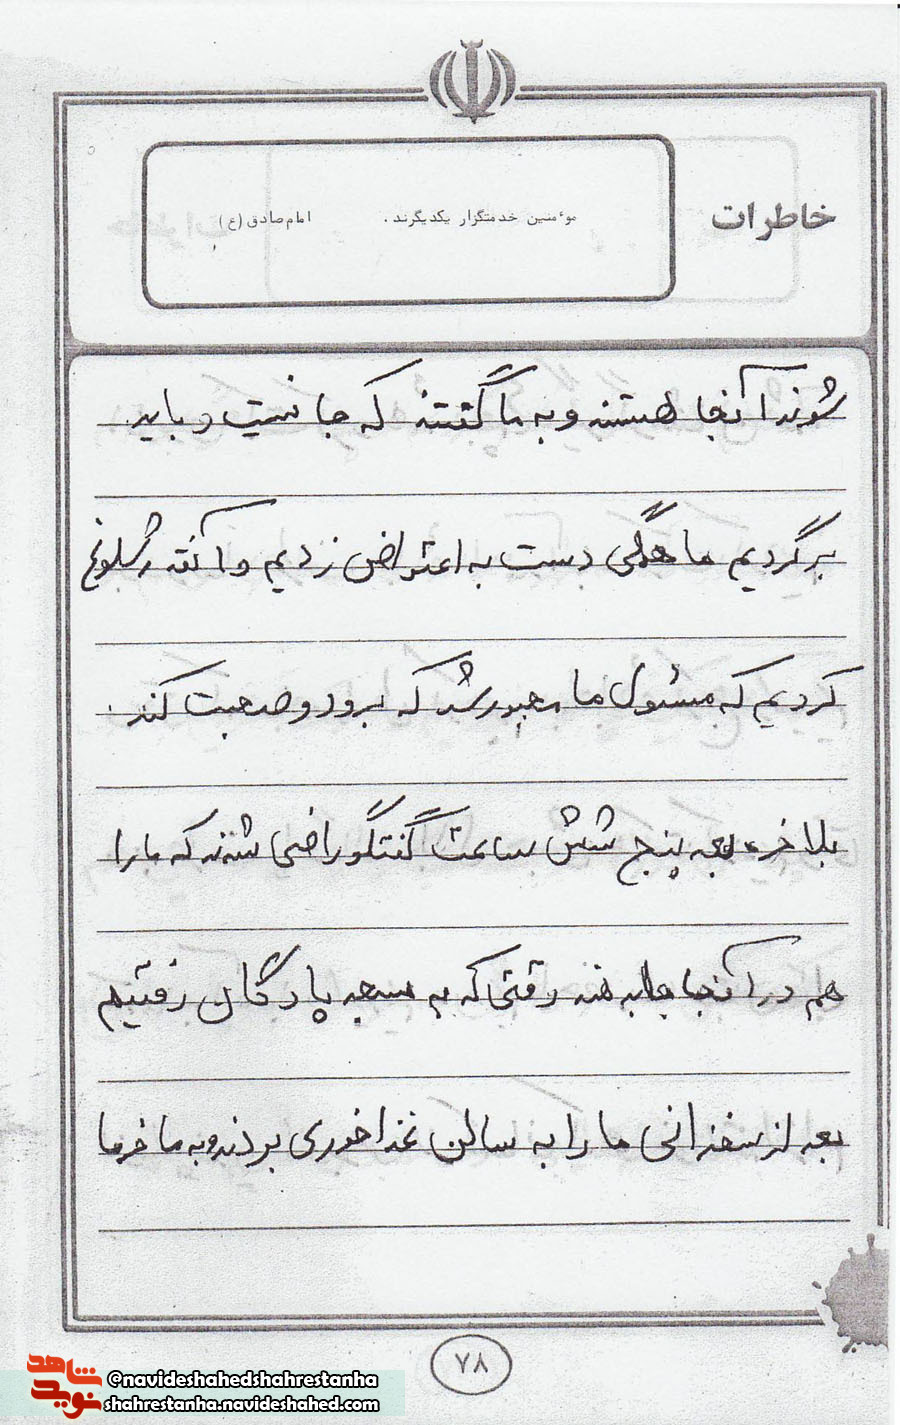 خاطرات
موٴمنین خدمتگزار یکدیگرند . امام صادق (ع)
شوند آنجا هستند و به ما گفتند که جا نیست و باید
برگردیم ما همگی دست به اعتراض زدیم و آنقدر شلوغ
کردیم که مسئول ما مجبور شد که برود و صحبت کند .
بلاخره بعد پنج شش ساعت گفتگو راضی شدند که ما را
هم در آنجا جا بدهند وقتی که به مسجد پادگان رفتیم
بعد از سخنرانی ما را به سالن غذا خوری بردند و به ما خرما
۷۸
شاهد
نوید
@navideshahedshahrestanha
shahrestanha.navideshahed.com